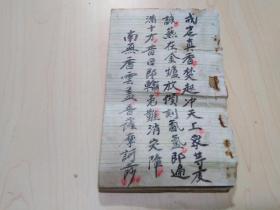 戒定真香焚起冲天上衆等虔
誠爇在金爐放頃刻氤氲即遍
滿十方昔日耶輸免難消灾障
南無香雲盖菩薩摩訶薩